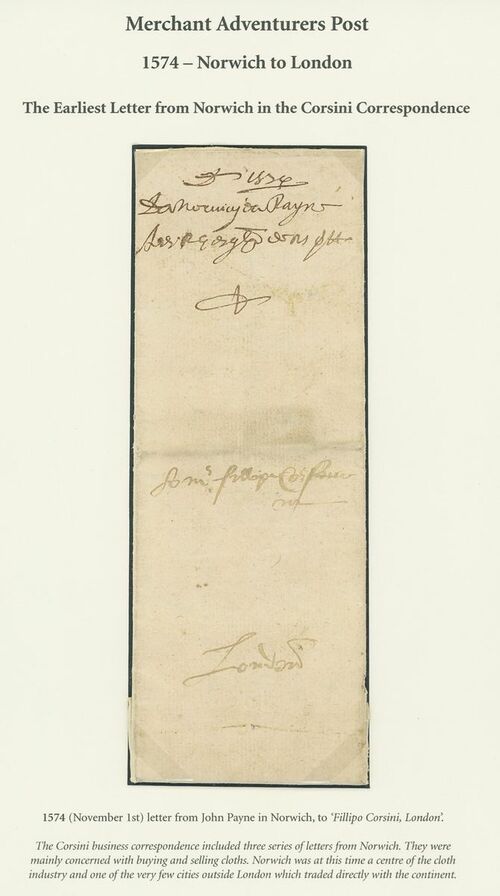 Merchant Adventurers Post
1574 – Norwich to London
The Earliest Letter from Norwich in the Corsini Correspondence
1574
Payne
fillipo Corsini
London
1574 (November 1st) letter from John Payne in Norwich, to ‘Fillipo Corsini, London’.
The Corsini business correspondence included three series of letters from Norwich. They were
mainly concerned with buying and selling cloths. Norwich was at this time a centre of the cloth
industry and one of the very few cities outside London which traded directly with the continent.